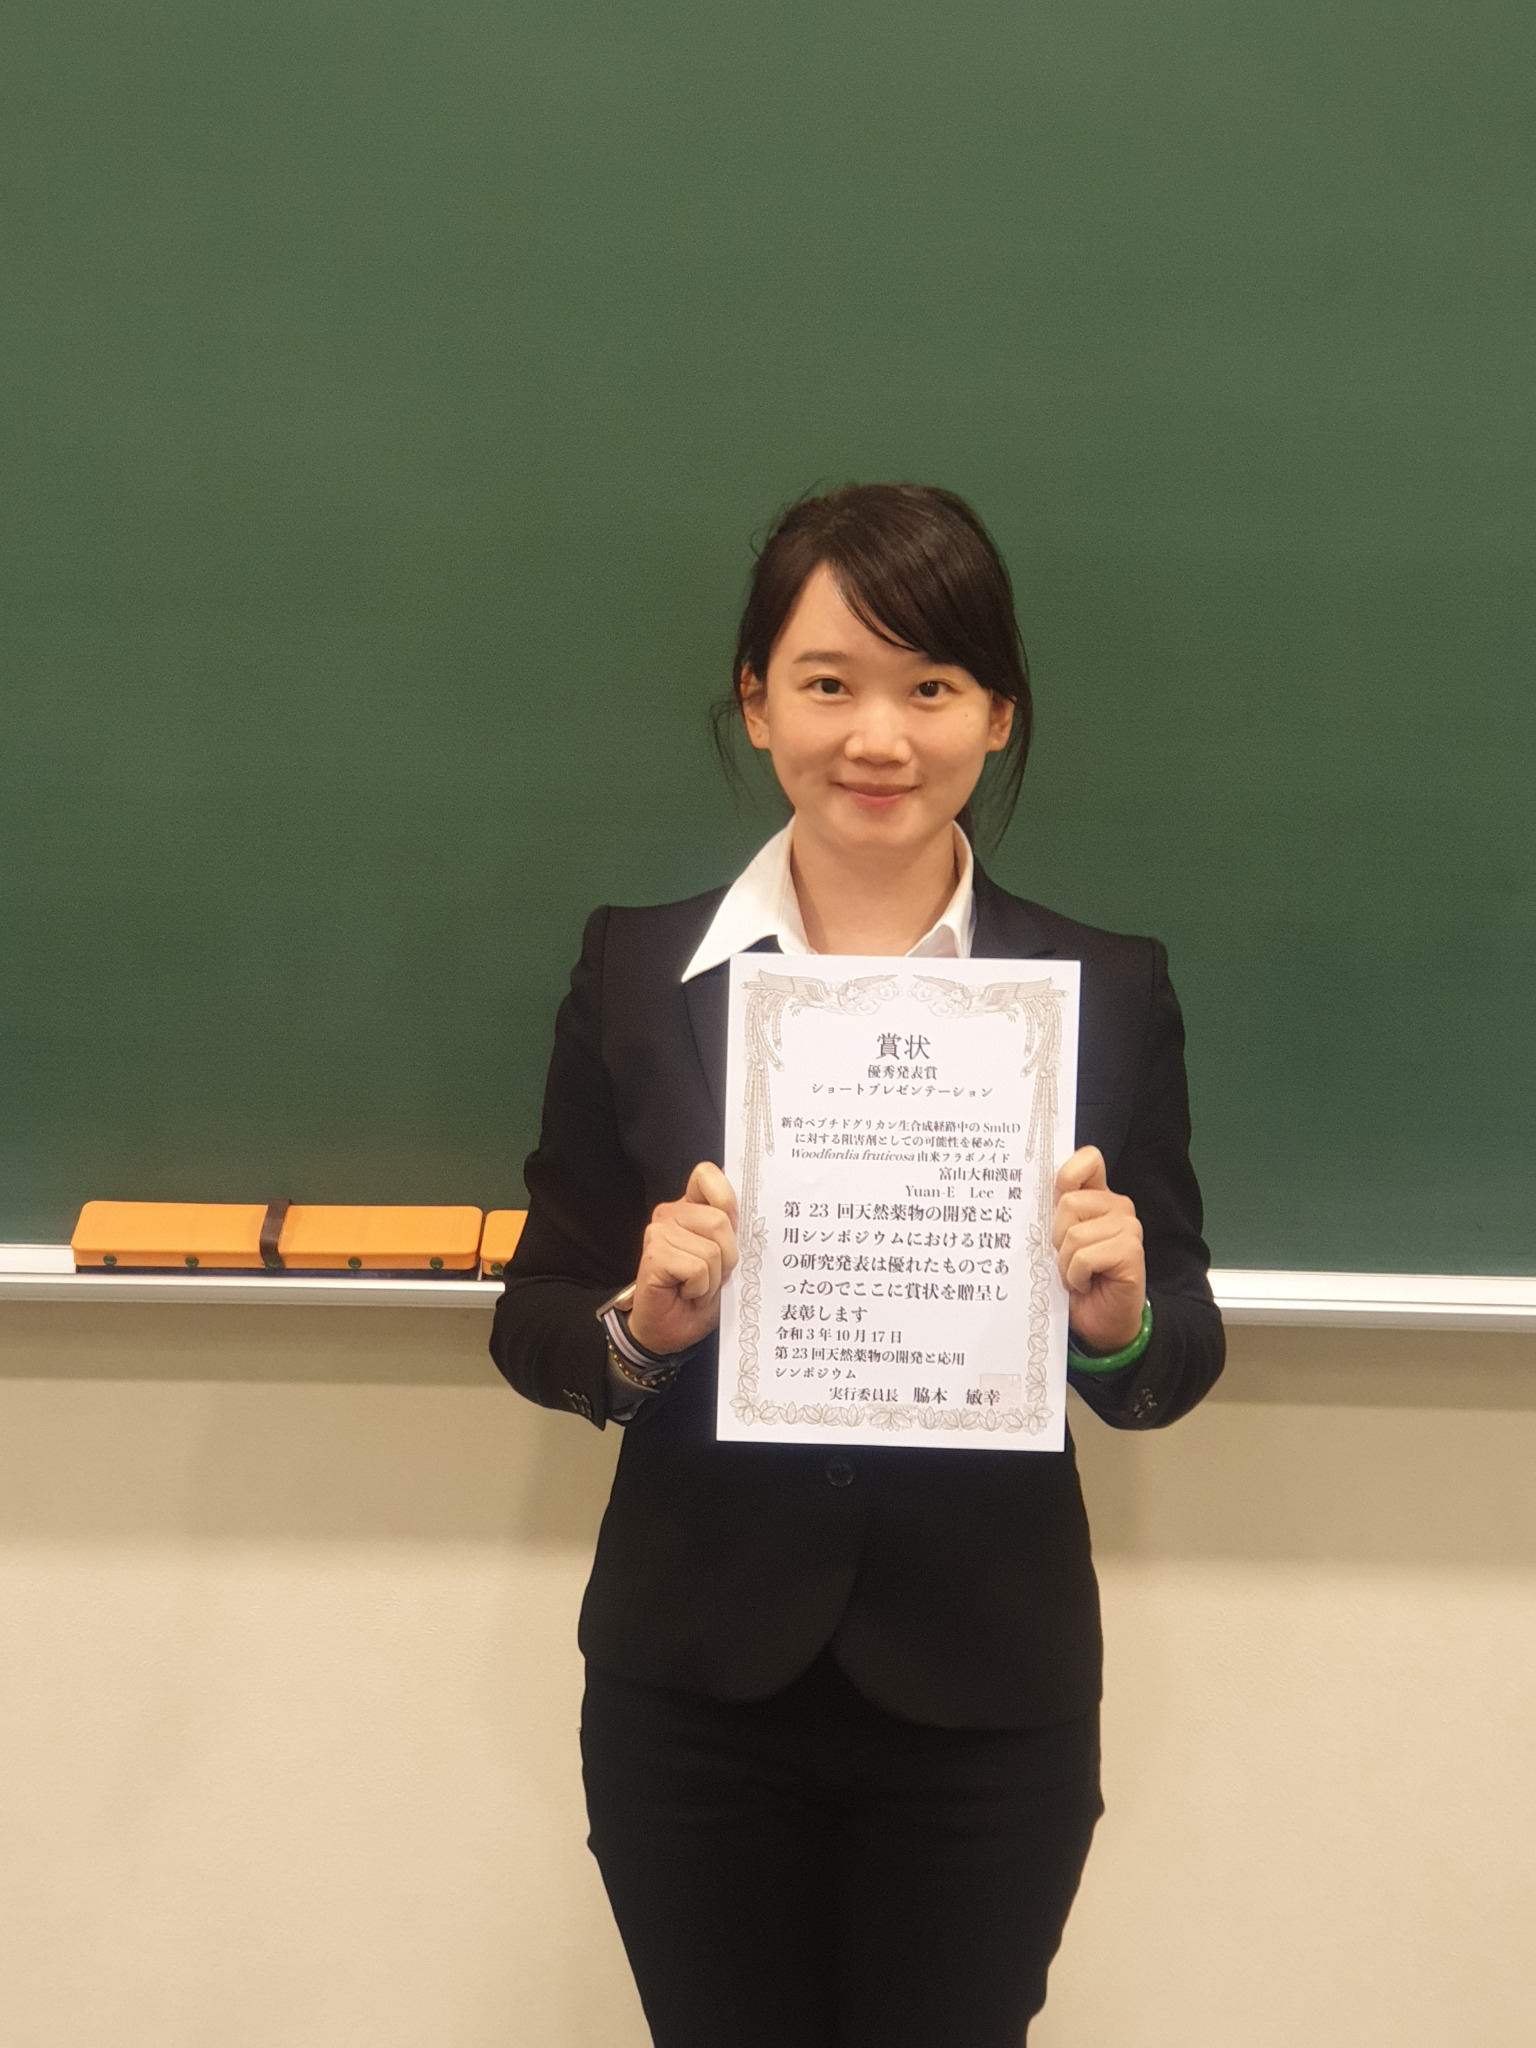 賞状
優秀発表賞
ショートプレゼンテーション
新奇ペプチドグリカン生合成経路中の SmltD
に対する阻害剤としての可能性を秘めた
Woodfordia fruticosa 由来フラボノイド
富山大和漢研
Yuan-E Lee 殿
第 23 回天然薬物の開発と応
用シンポジウムにおける貴殿
の研究発表は優れたものであ
ったのでここに賞状を贈呈し
表彰します
令和 3 年 10 月 17 日
第 23 回天然薬物の開発と応用
シンポジウム
実行委員長 脇本 敏幸